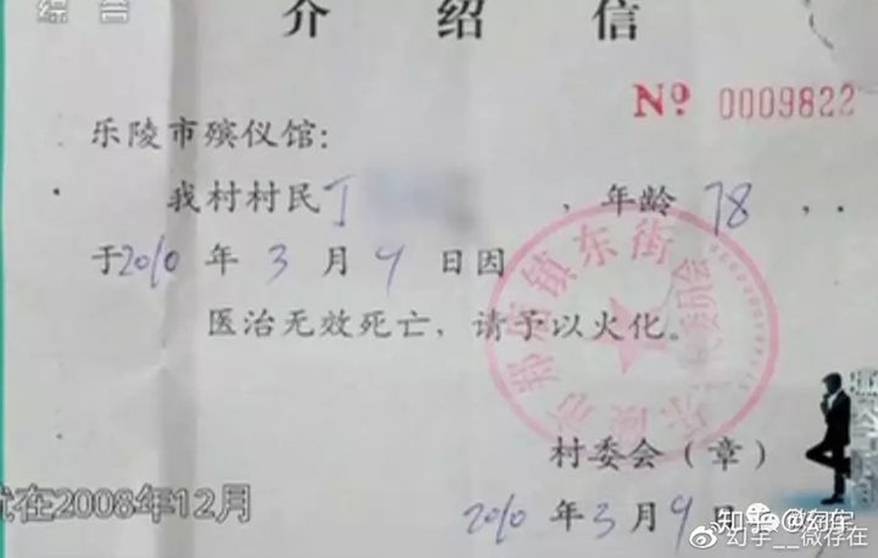 综合
介绍信
Nº 0009822
乐陵市殡仪馆:
我村村民丁 ,年龄 78 ,
于2010年3月9日因
医治无效死亡,请予以火化。
镇东街
村委会(章)
就在2008年12月
2010年3月9日
知乎 @幻宇
幻宇__微存在